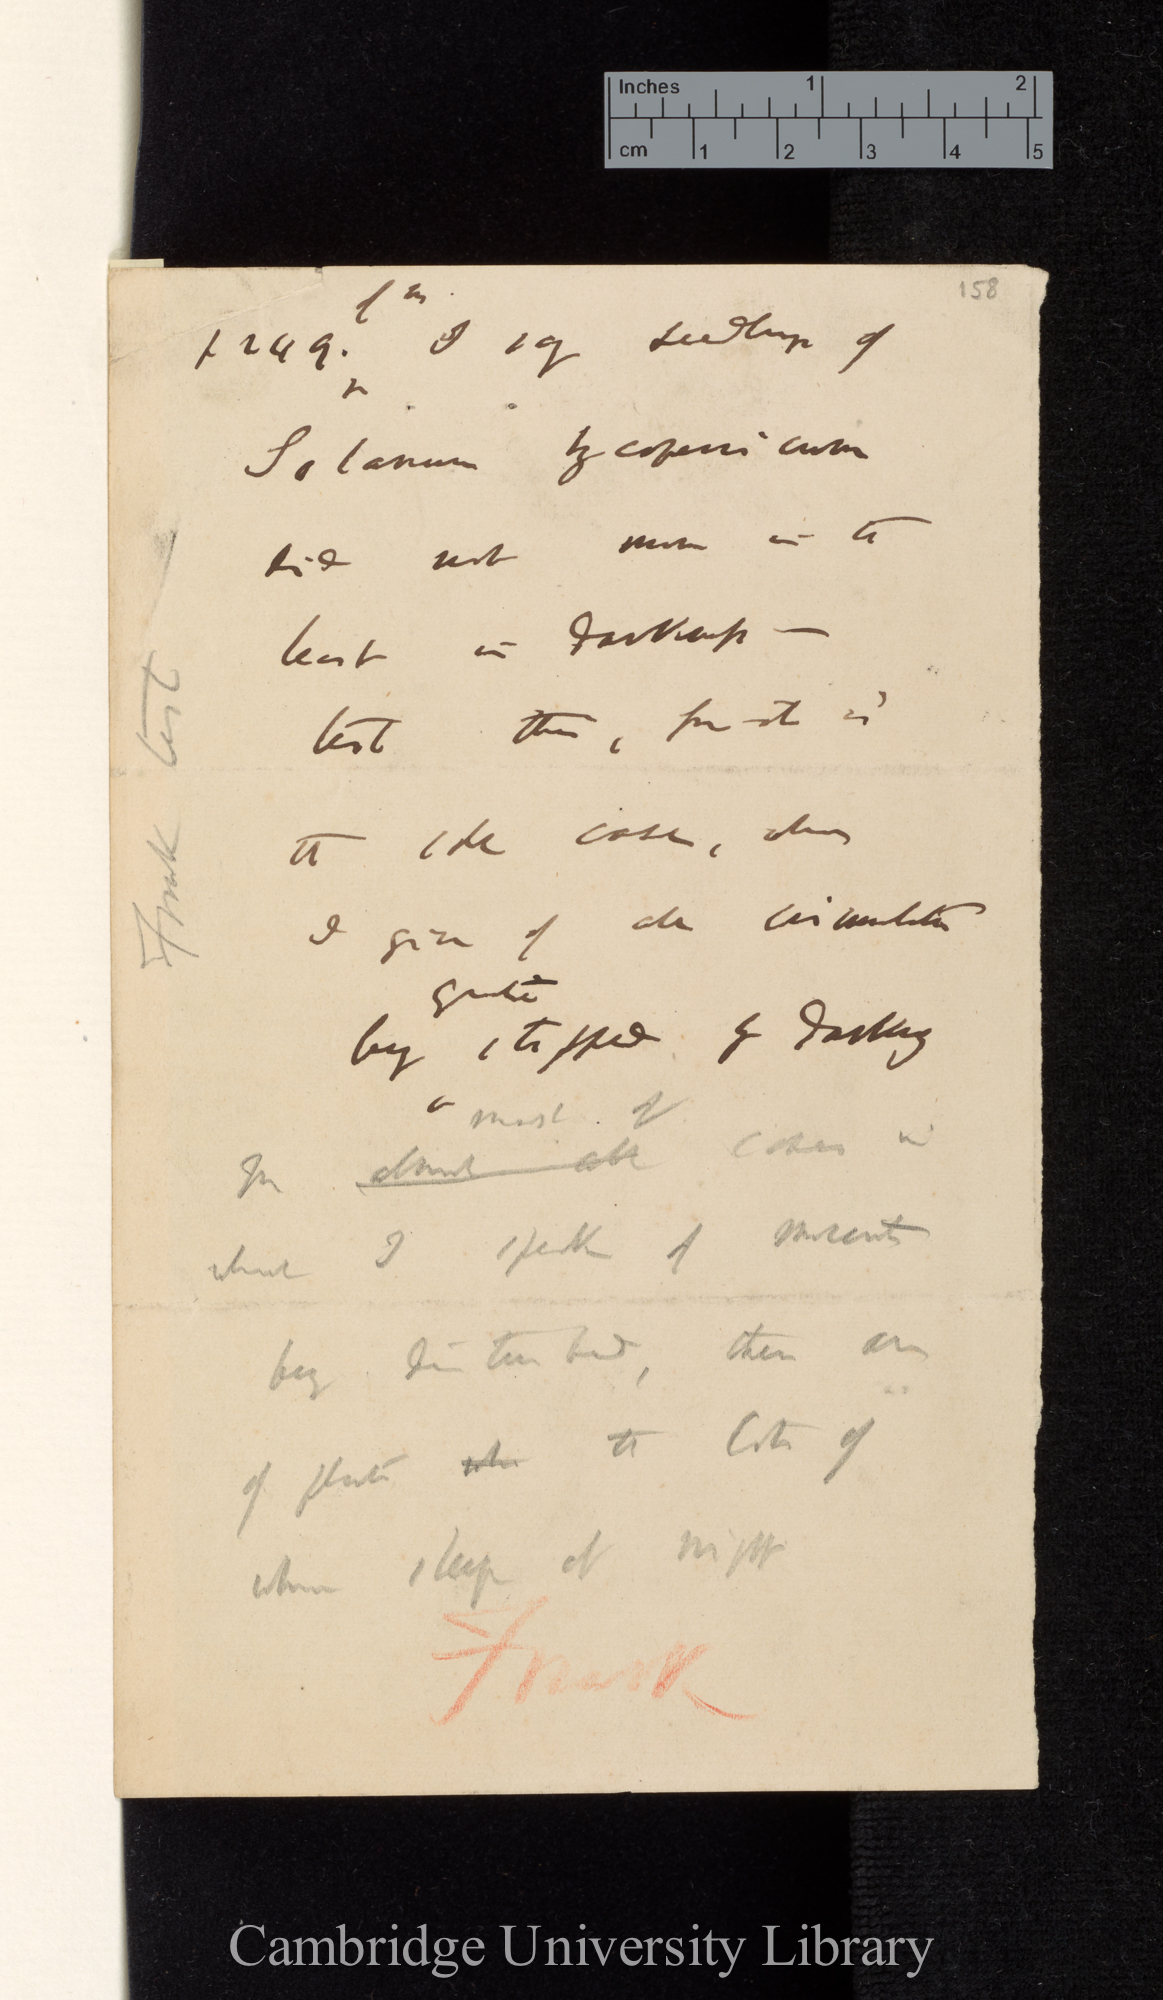 Inches 1 2
cm 1 2 3 4 5
158
of M.S.
p 249. I say seedlings of
Solanum lycopersicum
did not move in the
least in darkness —
test this, for it is
the sole case, where
I give of the circumnutation
quite
being stopped by darkness
most of
In almost all cases in
which I speak of movements
being disturbed, these are
of plants the Cots of
which sleep at night
Frank
Frank test
Cambridge University Library